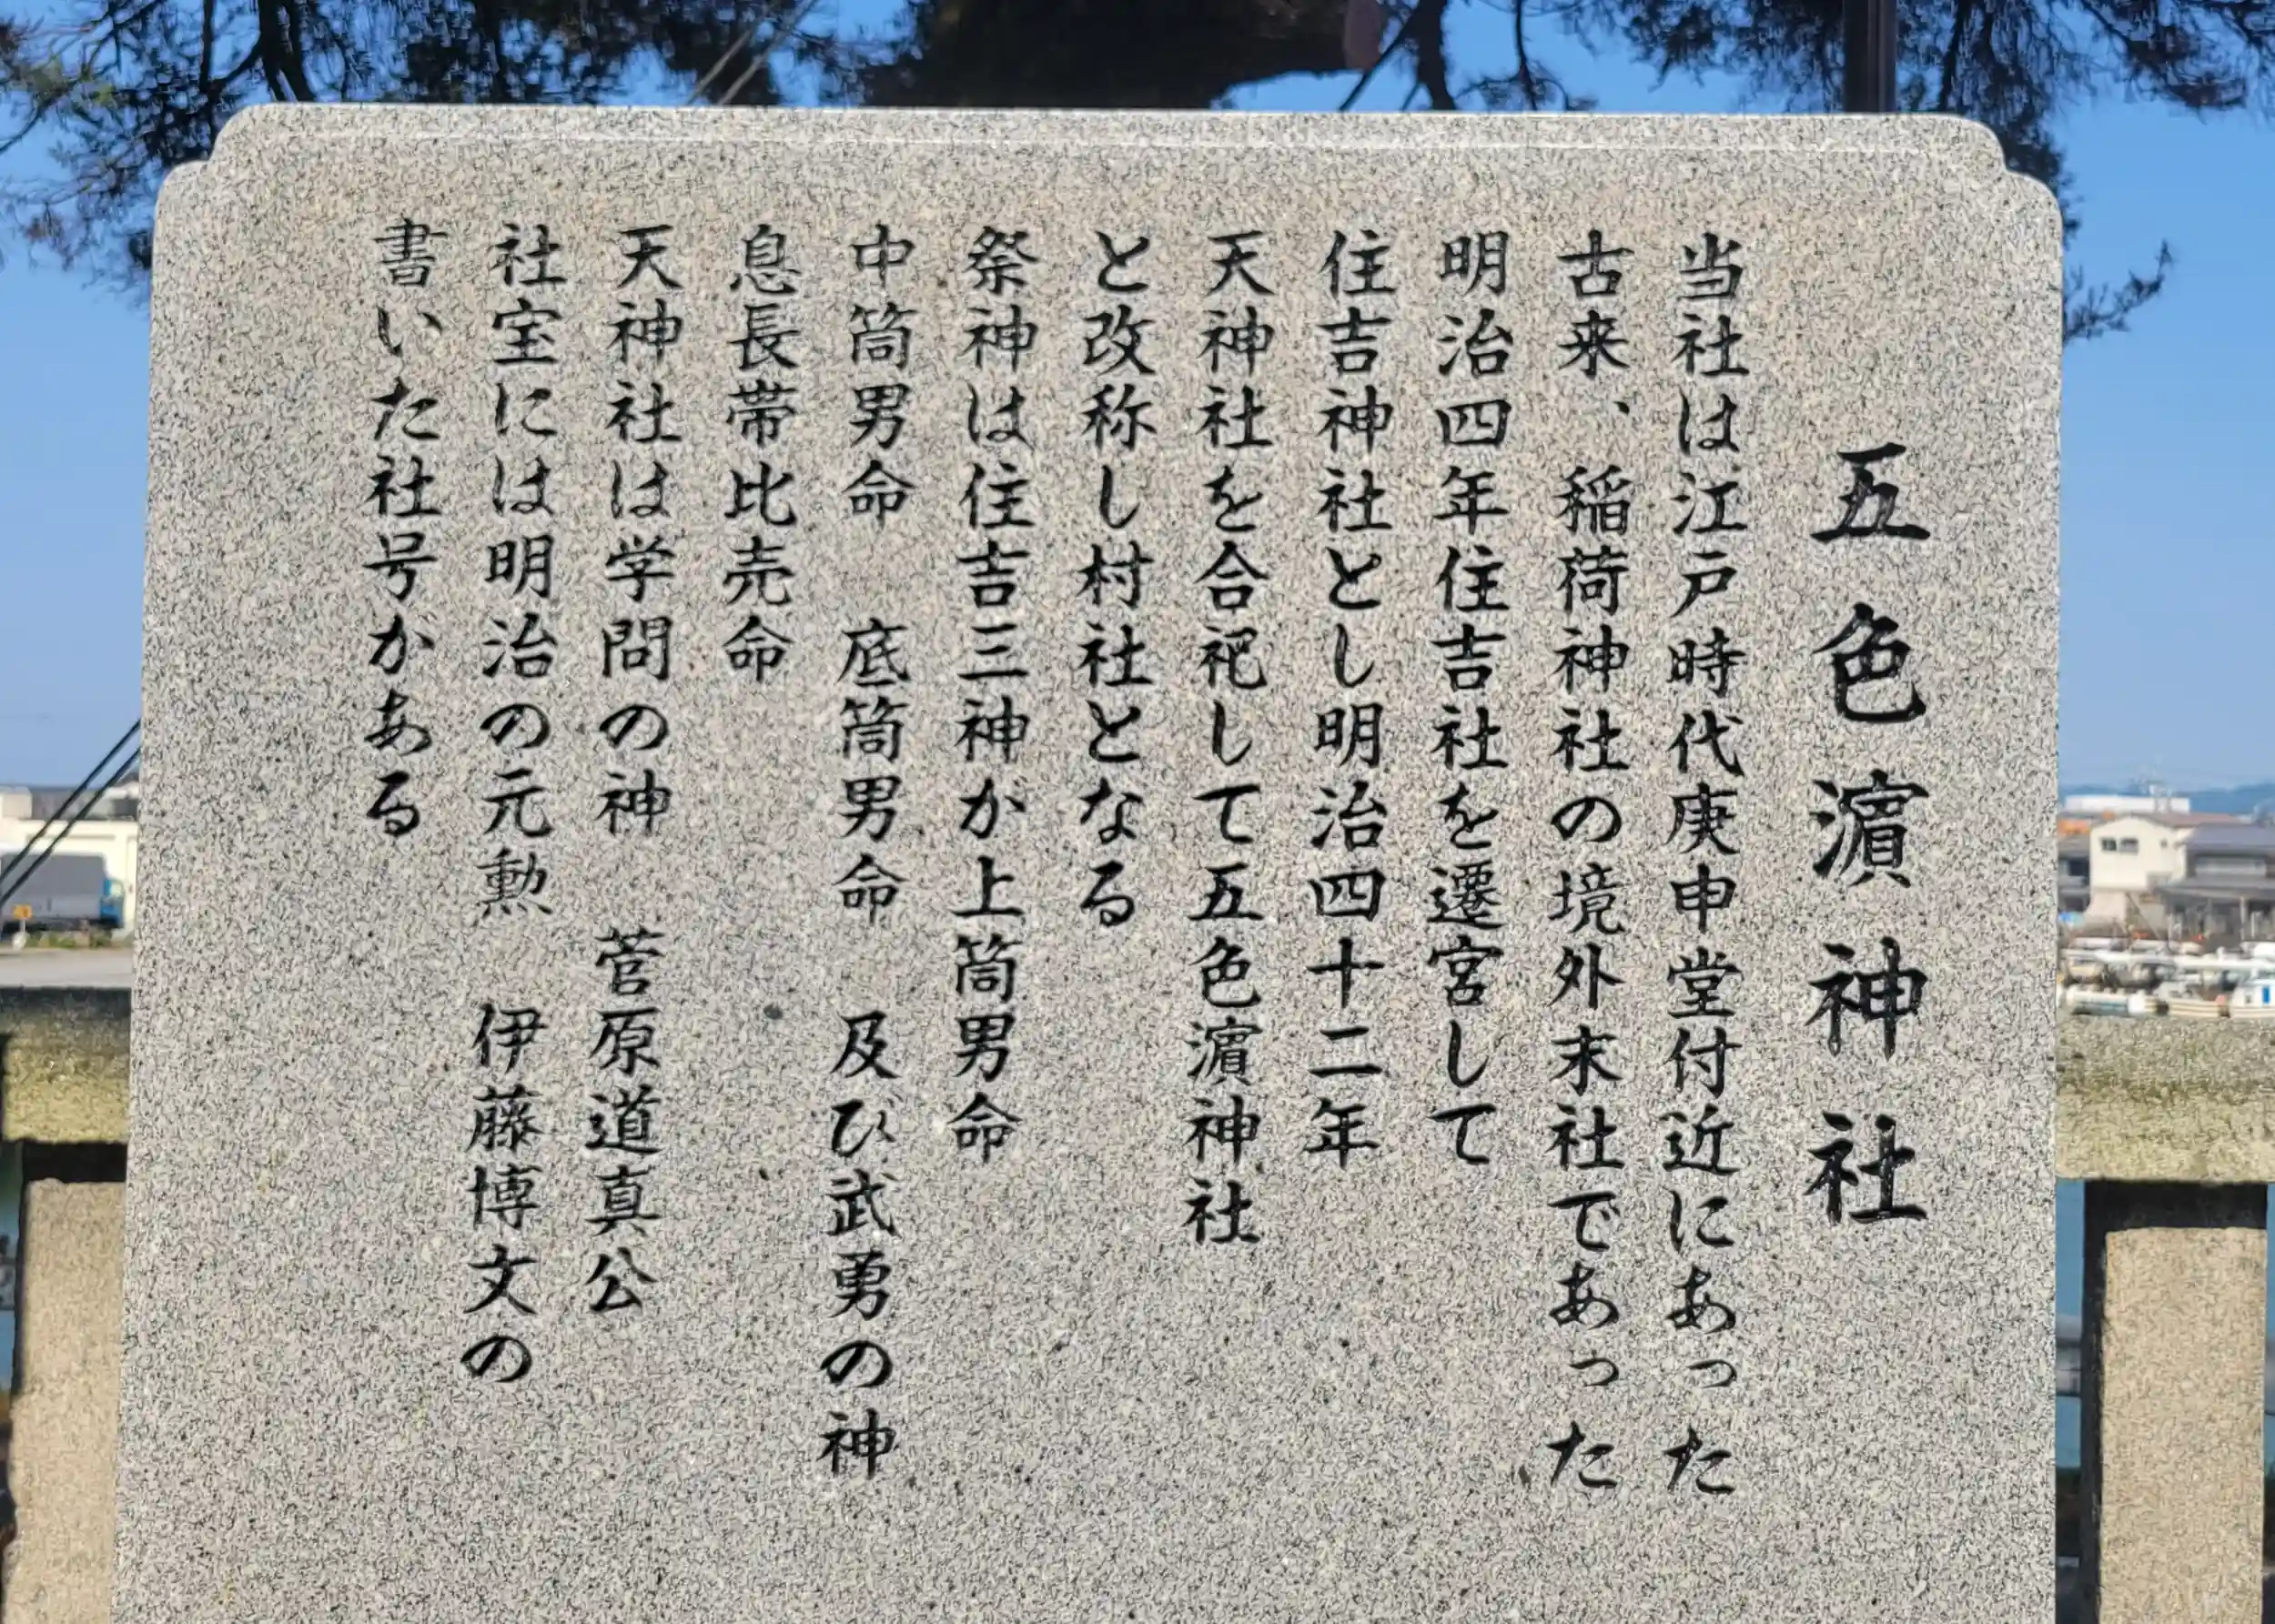 五色濵神社
当社は江戸時代庚申堂付近にあった
古来、稲荷神社の境外末社であった
明治四年住吉社を遷宮して
住吉神社とし明治四十二年
天神社を合祀して五色濵神社
と改称し村社となる
祭神は住吉三神が上筒男命
中筒男命　底筒男命　及び武勇の神
息長帯比売命
天神社は学問の神　菅原道真公
社宝には明治の元勲　伊藤博文の
書いた社号がある